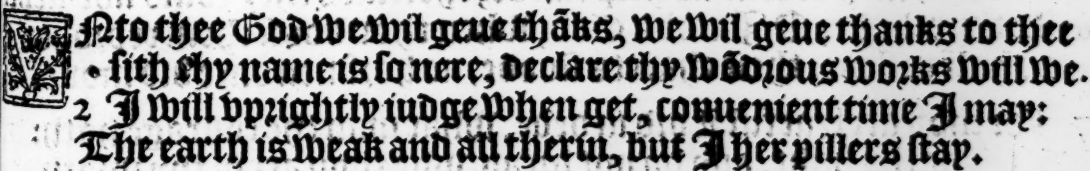 VNto thee God we wil geue thãks, we wil geue thanks to thee
sith thy name is so nere, declare thy wõdrous works will we.
2 I will vprightly iudge when get, conuenient time I may:
The earth is weak and all therin, but I her pillers stay.